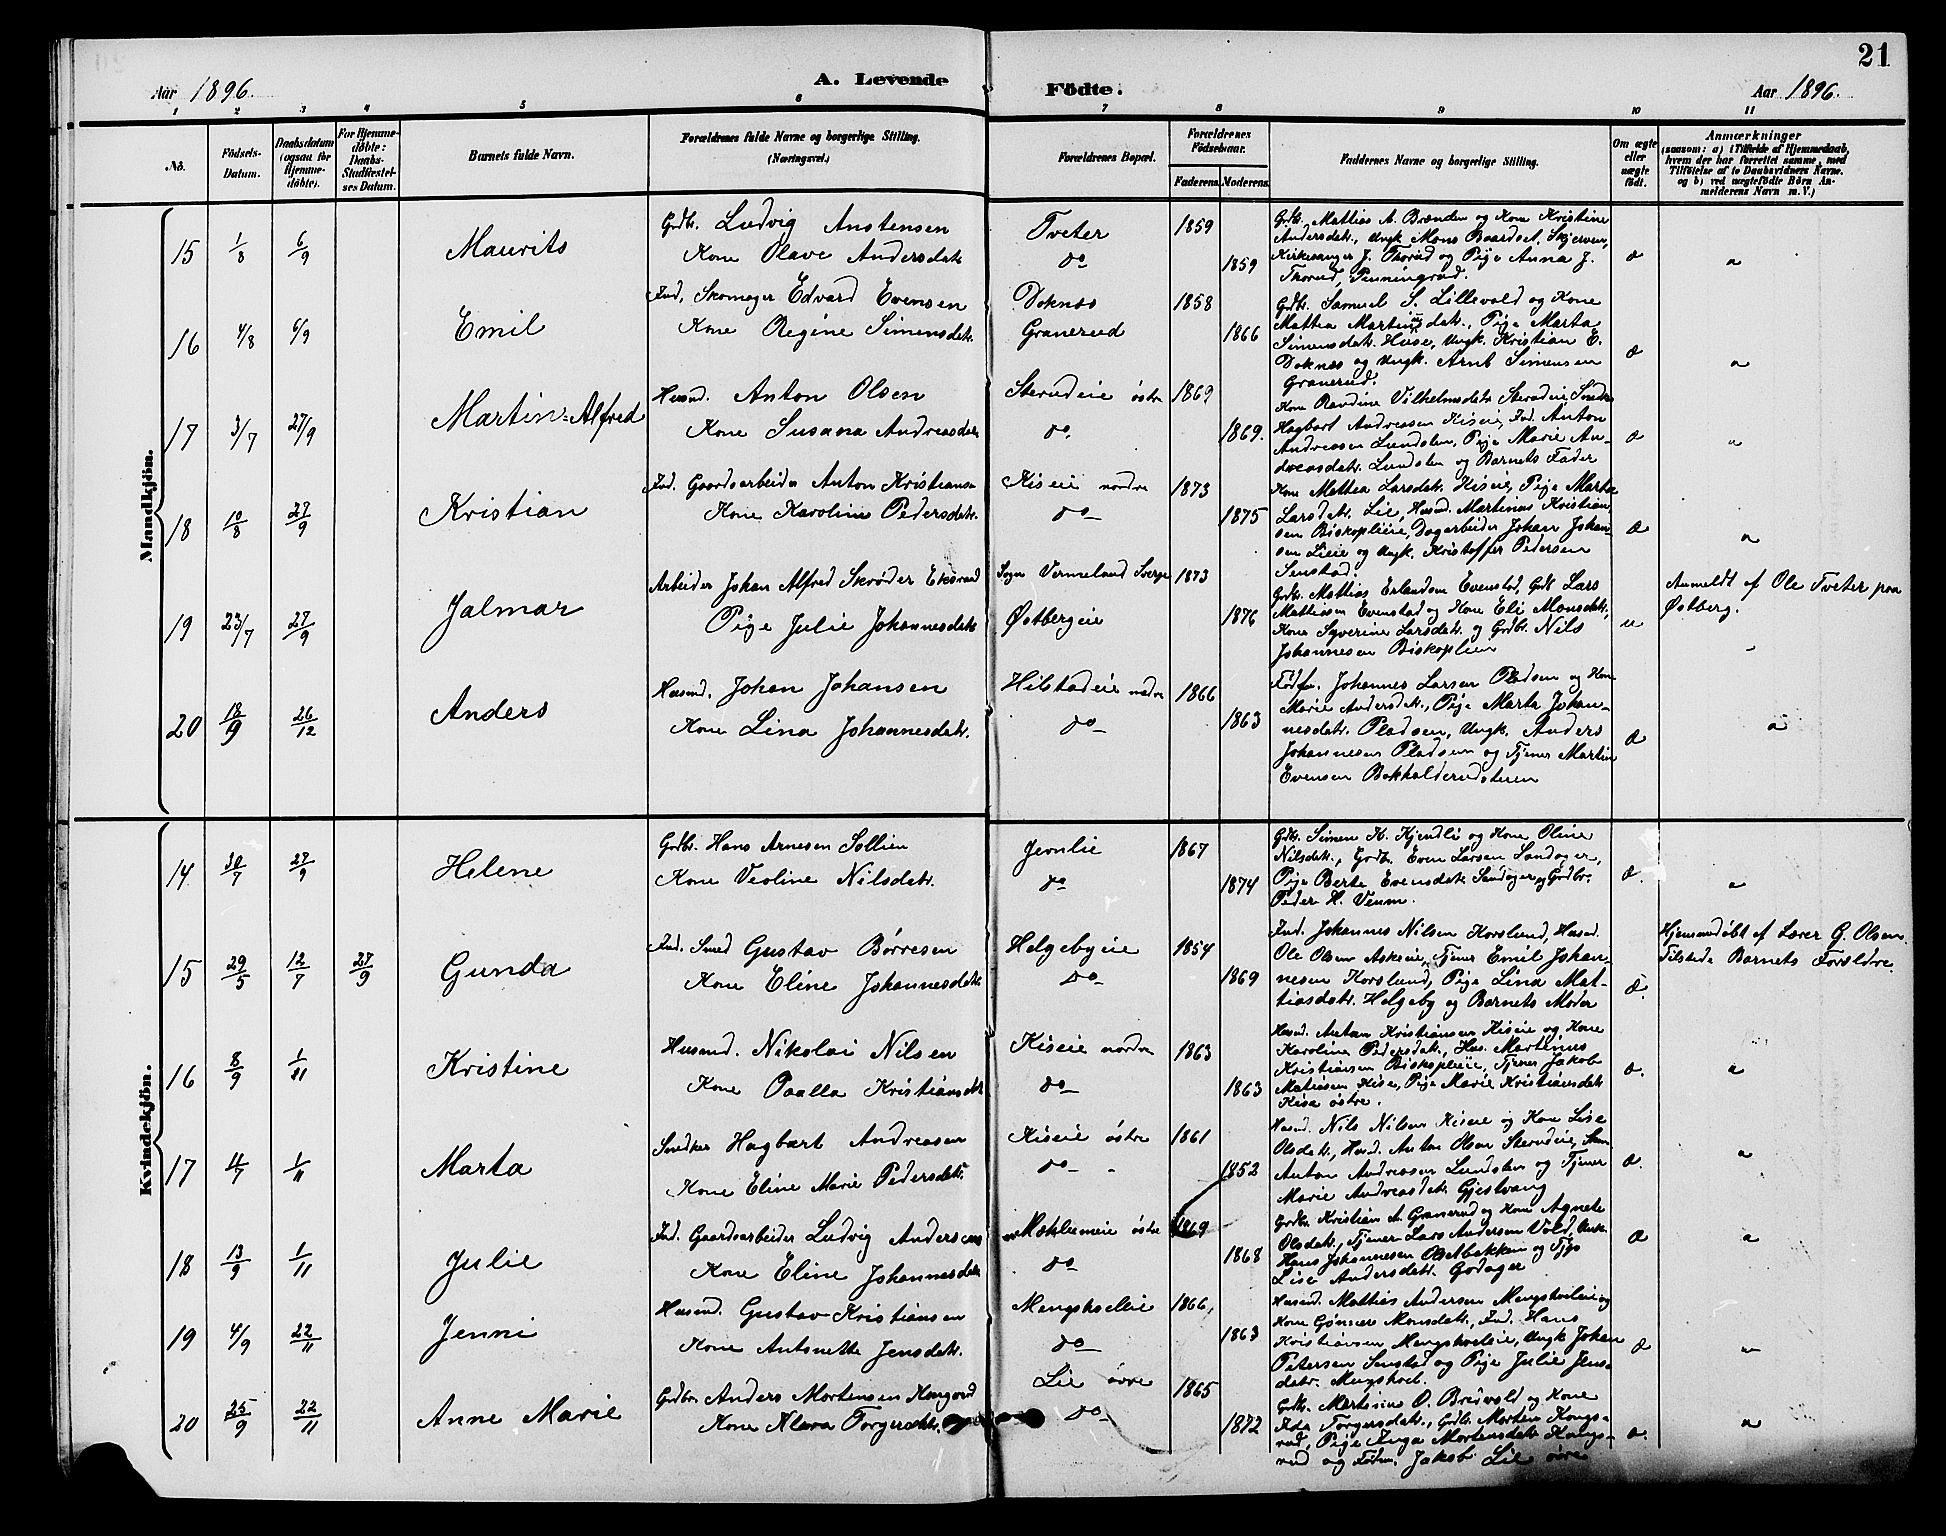 21
Aar 1896. A. Levende Fødte. Aar 1896.
1 2 3 4 5 6 7 8 9 10 11
No. Fødsels-Datum. Daabsdatum (ogsaa for Hjemmedøbte). For Hjemmedøbte: Daabs-Stadfæstelses Datum. Barnets fulde Navn. Forældrenes fulde Navne og borgerlige Stilling. (Næringsvei.) Forældrenes Bopæl. Forældrenes Fødselsaar. Faderens. Moderens. Faddernes Navne og borgerlige Stilling. Om ægte eller uægte født. Anmærkninger (saasom: a) i Tilfælde af Hjemmedaab, hvem der har forrettet samme, med Tilføielse af to Daabsvidners Navne. og b) ved uægtefødte Børn Anmelderens Navn m. V.)
Mandkjøn.
15 1/8 6/9 Maurits Grdbr. Ludvig Anstensen Tveter 1859 Grdbr. Mattias A. Brænden og Kone Kristine
Kone Olave Andersdatr. do 1859 Andersdatr., Ungk. Mons Baardset, Skjerven,
Kirkesanger J. Thorud og Pige Anna J.
Thorud, Pinningrud. æ "
16 4/8 6/9 Emil Ind. Skomager Edvard Evensen Doknæs 1858 Grdbr. Samuel S. Lillevold og Kone
Kone Regine Simensdatr. Granerud 1866 Mattea Martinusdatr., Pige Marta
Simensdatr. Huse, Ungk. Kristian E.
Doknæs og Ungk. Arnt Simensen
Granerud. æ "
17 3/7 27/9 Martin=Alfred Husmd. Anton Olsen Sterudeie østre 1869 Kone Randine Vilhelmsdatr. Sterudeie,
Kone Susana Andreasdatr. do. 1869. Hagbart Andreasen Kiseie, Ind. Anton
Andreasen Lundsten, Pige Marie An-
dreasdatr. Lundsten og Barnets Fader æ "
18 10/8 27/9 Kristian Ind. Gaardsarbeider Anton Kristiansen Kiseie nordre 1873 Kone Mattea Larsdatr. Kiseie, Pige Marta
Kone Karoline Pedersdatr. do 1875 Larsdatr. Lie, Husmd. Martinus Kristian-
sen Biskoplieie, Dagarbeider Johan Johan-
sen Lieie og Ungk. Kristoffer Pedersen
Senstad. æ "
19 23/7 27/9 Jalmar Arbeider Johan Alfred Skrøder Vermeland Sverge 1873 Grdbr. Mattias Erlandsen Evenstad, Grdb. Lars
Pige Julie Johannesdatr. Østbergeie 1876 Mattiasen Evenstad og Kone Eli Monsdatr.,
Kone Syverine Larsdatr. og Grdbr. Nils
Johannesen Biskoplien u Anmeldt af Ole Tveter paa
Østberg.
20 18/9 26/12 Anders Husmd. Johan Johansen Hilstadeie nedre 1866 Johannes Larsen Pladsen og Kone
Kone Lina Johannesdatr. do 1863 Marie Andersdatr., Pige Marta Johan-
nesdatr. Pladsen, Ungk. Anders
Johannesen Pladsen og Tjener Martin
Evensen æ "
Kvindekjøn.
14 30/7 27/9 Helene Grdbr. Hans Arnesen Sollien Jevnlie 1867 Grdbr. Simen K. Kjendli og Kone Oline
Kone Veoline Nilsdatr. do 1874 Nilsdatr., Grdb. Even Larsen Sandager,
Pige Berte Evensdatr. Sandager og Grdbr.
Peder H. Veum. æ. "
15 29/5 12/7 27/9 Gunda Ind. Smed Gustav Børresen Helgebyeie 1854 Ind. Johannes Nilsen Korslund, Husmd.
Kone Eline Johannesdatr. do 1869 Ole Olsen Askeie, Tjener Emil Johan-
nesen Korslund, Pige Lina Mat-
tiasdatr. Helgeby og Barnets Moder æ. Hjemmedøbt af Lærer G. Olsen.
Tilstede Barnets Forældre.
16 8/9 1/11 Kristine Husmd. Nikolai Nilsen Kiseie nordre 1863 Husmd. Anton Kristiansen Kiseie og Kone
Kone Paalla Kristiansdatr. do 1863 Karoline Pedersdatr., Hus. Martinus
Kristiansen Biskoplieie, Tjener Jakob
Matiasen Kise, Pige Marie Kristiansdatr.
Kise østre. æ. "
17 11/7 1/11 Marta Snedker Hagbart Andreasen Kiseie østre 1861 Husmd. Nils Nilsen Kiseie og Kone Lise
Kone Eline Marie Pedersdatr. do 1852 Olsdatr., Husd. Anton Olsen Sterudeie,
Anton Andreasen Lundsten og Tjener
Marie Andreasdatr. Gjestvang æ. "
18 13/9 1/11 Julie Ind. Gaardsarbeider Ludvig Andersen Mæhlumeie østre 1869 Grdbr. Kristian A. Granerud og Kone Agnete
Kone Eline Johannesdatr. do 1868 Olsdatr., Tjener Lars Andersen Vold, Ungk.
Hans Johannesen Olsetbakken og Pige
Lise Andersdatr. Godager æ "
19 4/9 22/11 Jenni Husmd. Gustav Kristiansen Mengskoleie 1866, Husmd. Mattias Andersen Mengskoleie og
Kone Antonette Jensdatr. do 1863 Kone Gønner Monsdatr., Ind. Hans
Kristiansen Mengskoleie, Ungk Johan
Petersen Senstad og Pige Julie Jens-
datr. æ "
20 25/9 22/11 Anne Marie Grdbr. Anders Mortensen Kongsrud Lie øvre 1865 Grdbr. Martinus O. Breivold og Kone
Kone Klara Torgersdatr. do 1872 Torgersdatr., Grdbr. Morten Kongs-
rud, Pige Inga Mortensdatr. Kongs-
rud og Jakob Lie øvre æ. "